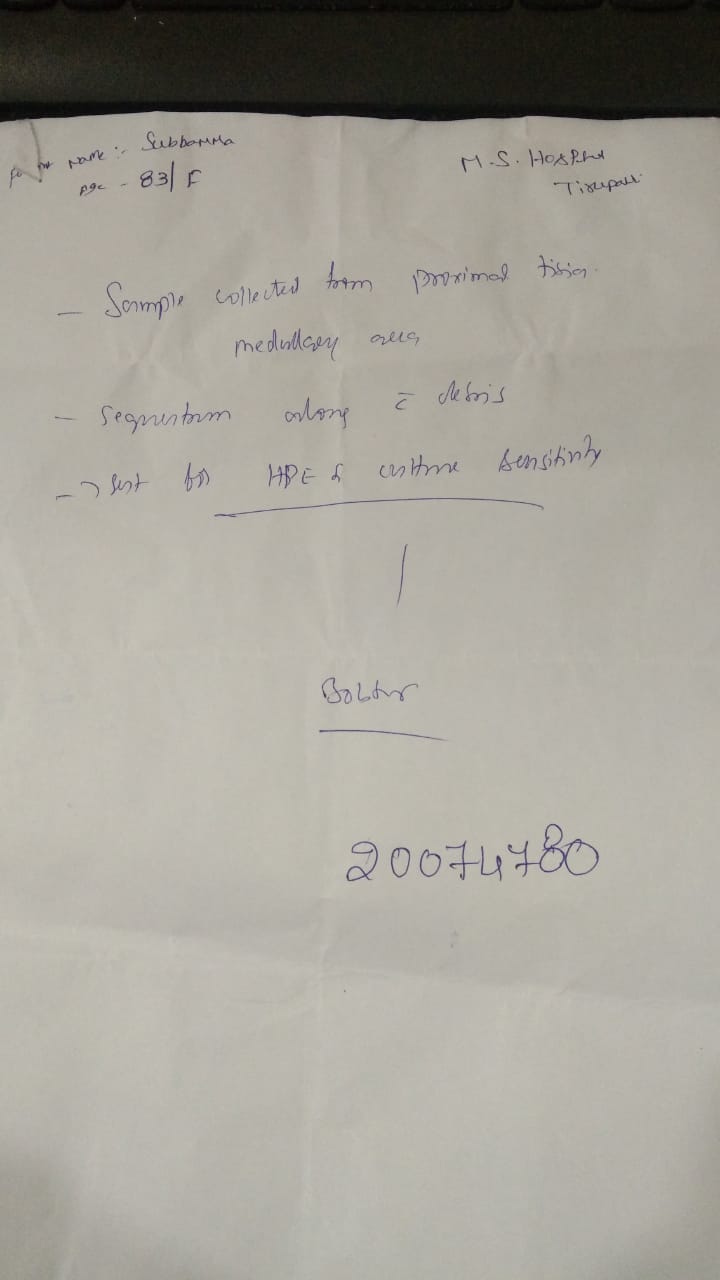 Patient Name :- Subbamma
Age - 83/F
M.S. Hospital
Tirupati
- Sample collected from proximal tibia
medullary area
- Sequestrum along c̄ debris
-> Sent for HPE & culture sensitivity
20074780